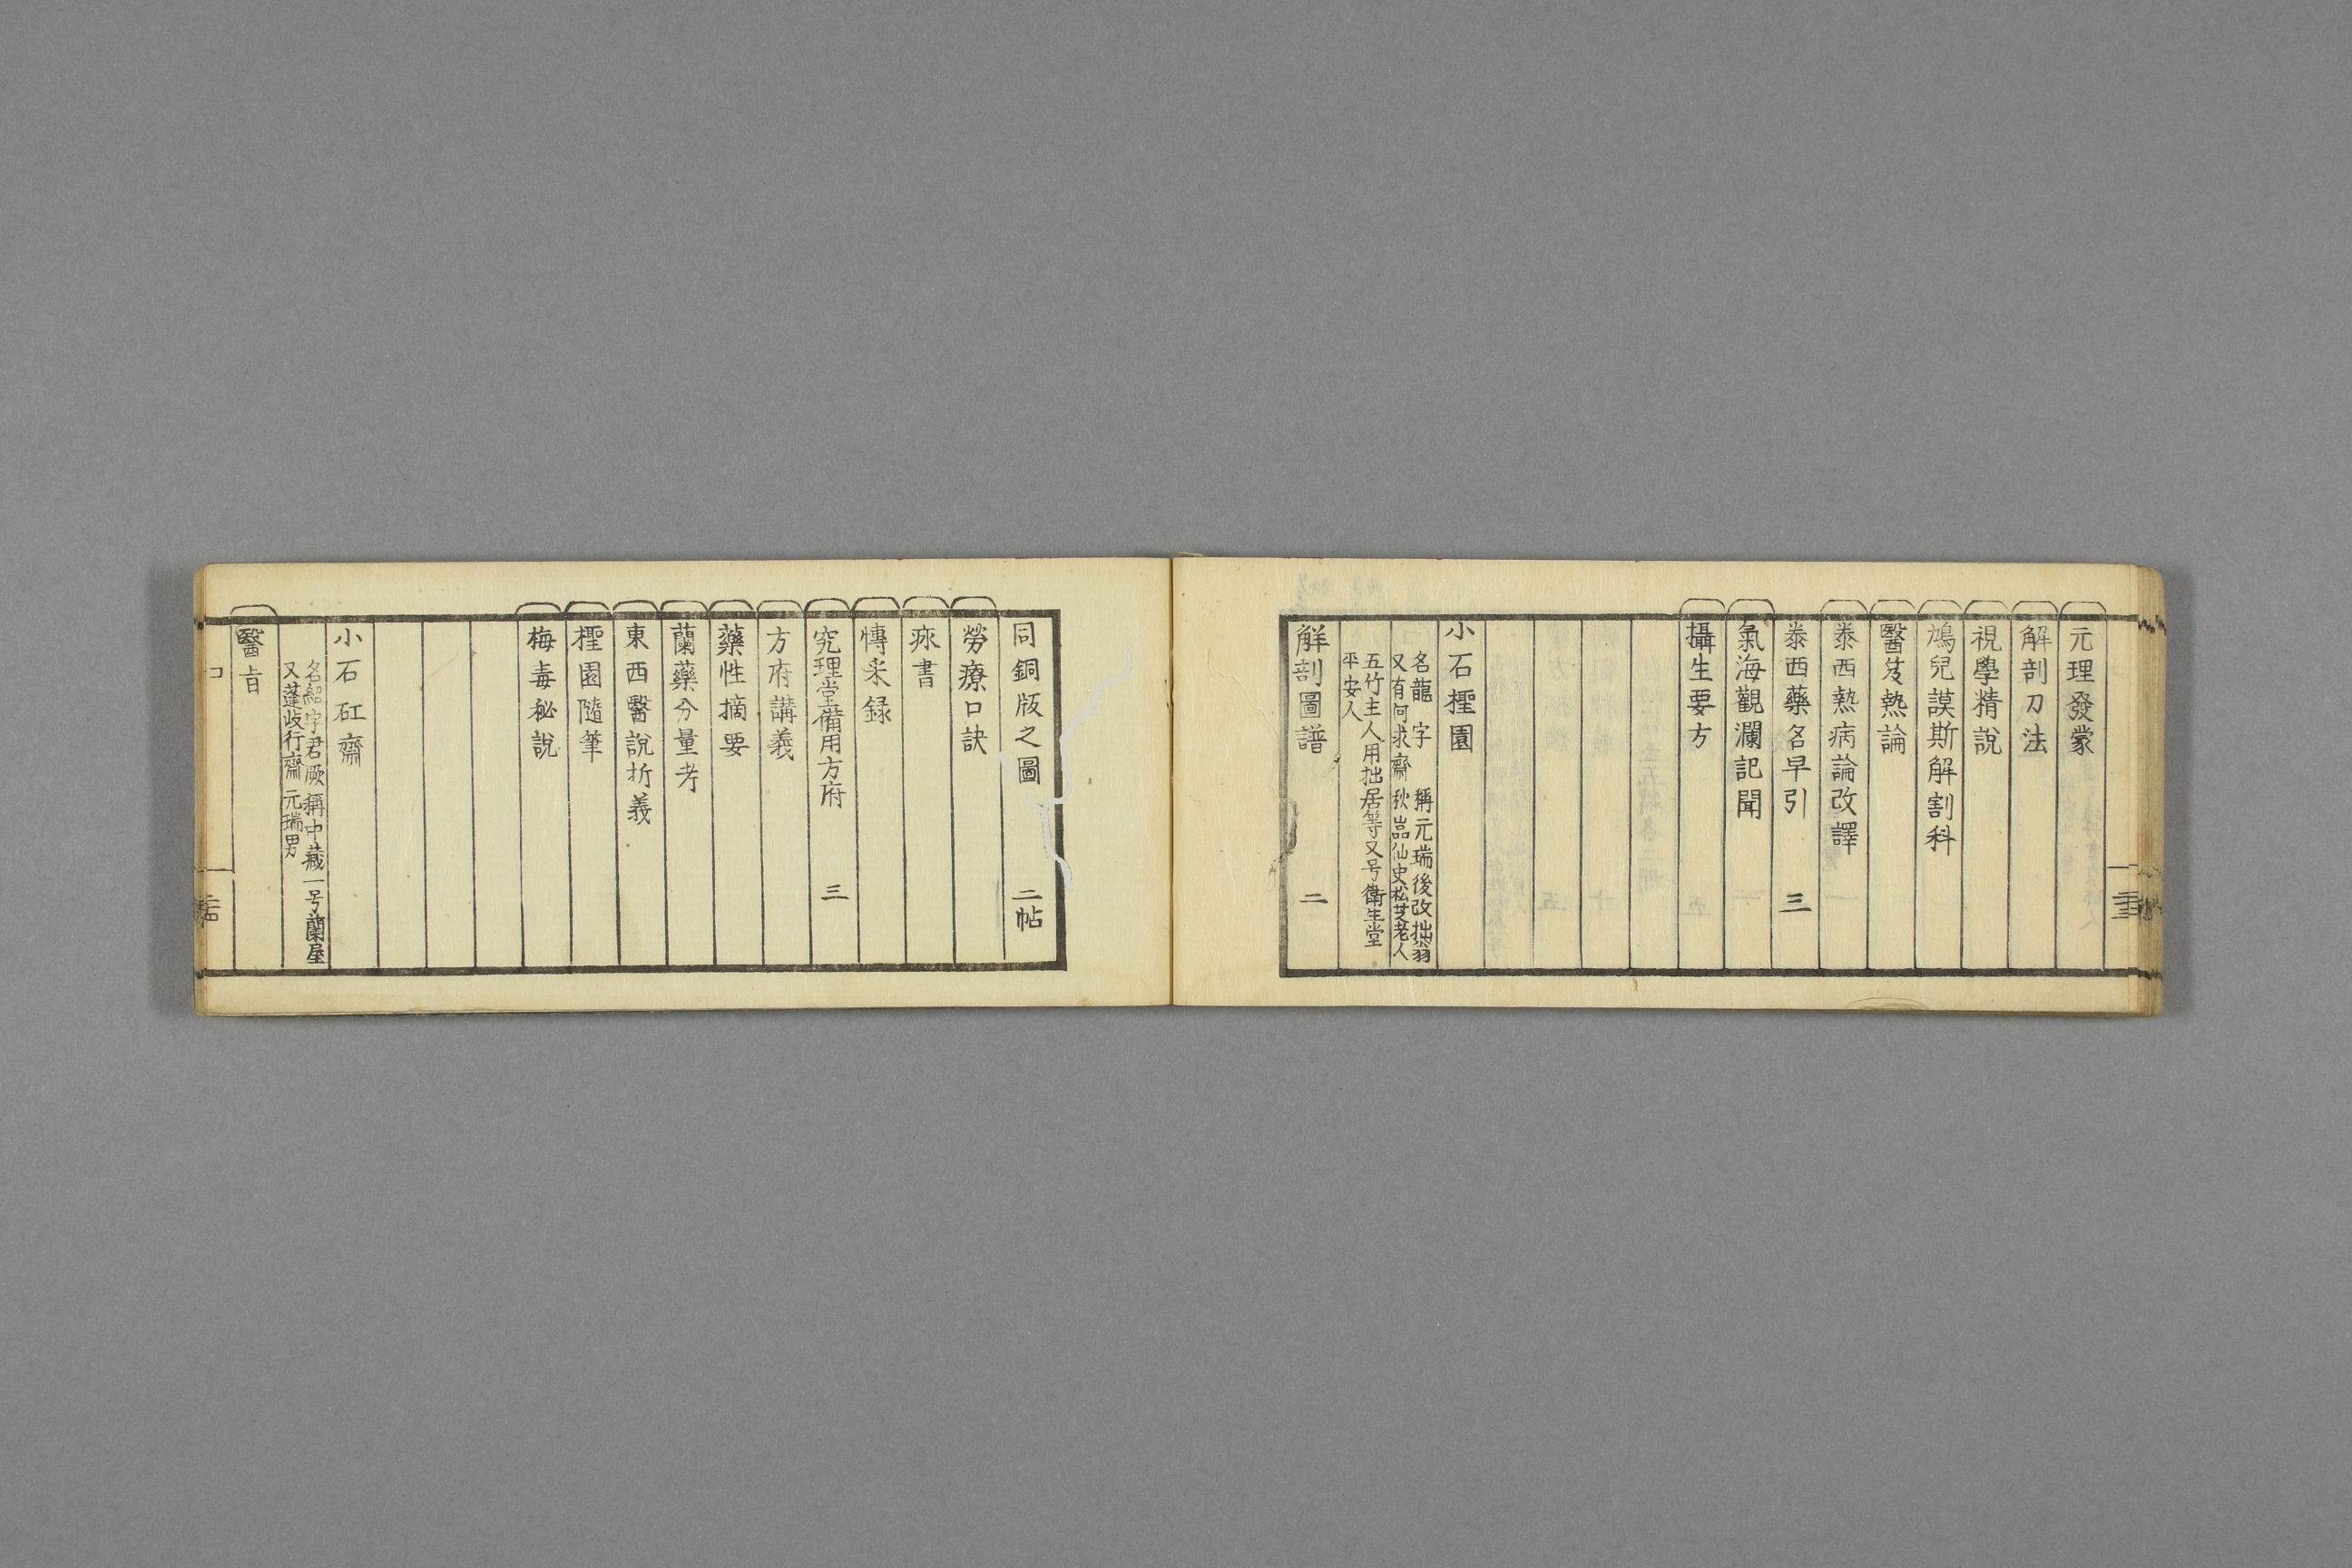 元理發蒙
解剖刀法
視學精說
鳩兒謨斯解割科
醫笈熱論
泰西熱病論改譯
泰西藥名早引 三
氣海觀瀾記聞
攝生要方
小石檉園
名龍 字 稱元瑞後改拙翁
又有何求齋 秋嵓仙史松芝老人
五竹主人用拙居等又号衛生堂
平安人
解剖圖譜 二
同銅版之圖 二帖
勞療口訣
痳書
博采録
究理堂備用方府 三
方府講義
藥性摘要
蘭藥分量考
東西醫說折義
檉園隨筆
梅毒秘說
小石矼齋
名紹字君厥稱中藏一号蘭屋
又蓬歧行齋 元瑞男
醫旨
コ